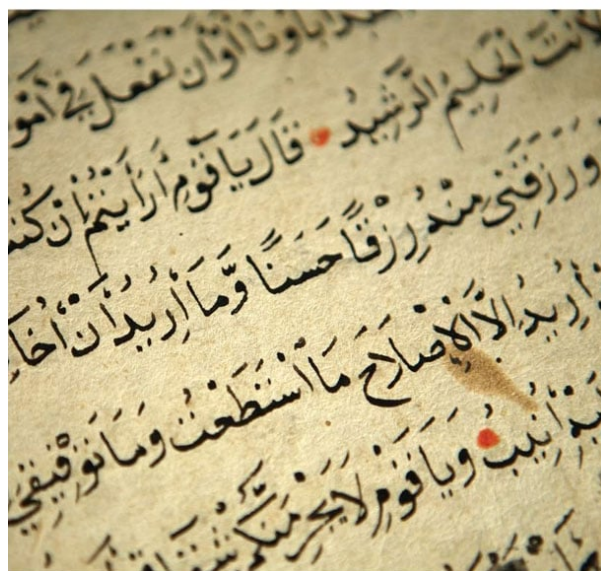 آباؤنا أو أن نفعل في أموا
لأنت الحليم الرشيد قال يا قوم أرأيتم إن كنت
ورزقني منه رزقًا حسنًا وما أريد أن أخا
أريد إلا الإصلاح ما استطعت وما توفيقي
أنيب ويا قوم لا يجرمنكم شقا